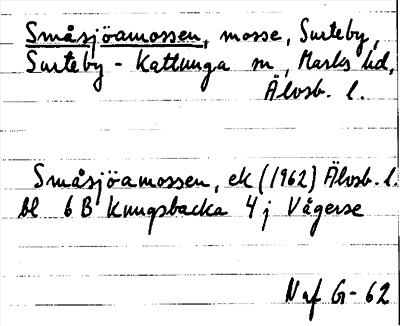 Småsjöamossen, mosse, Surteby,
Surteby - Kattunga sn, Marks hd,
Älvsb. l.
Småsjöamossen, ek (1962) Älvsb. l.
bl 6 B Kungsbacka 4 j Vågerse
Naf G-62